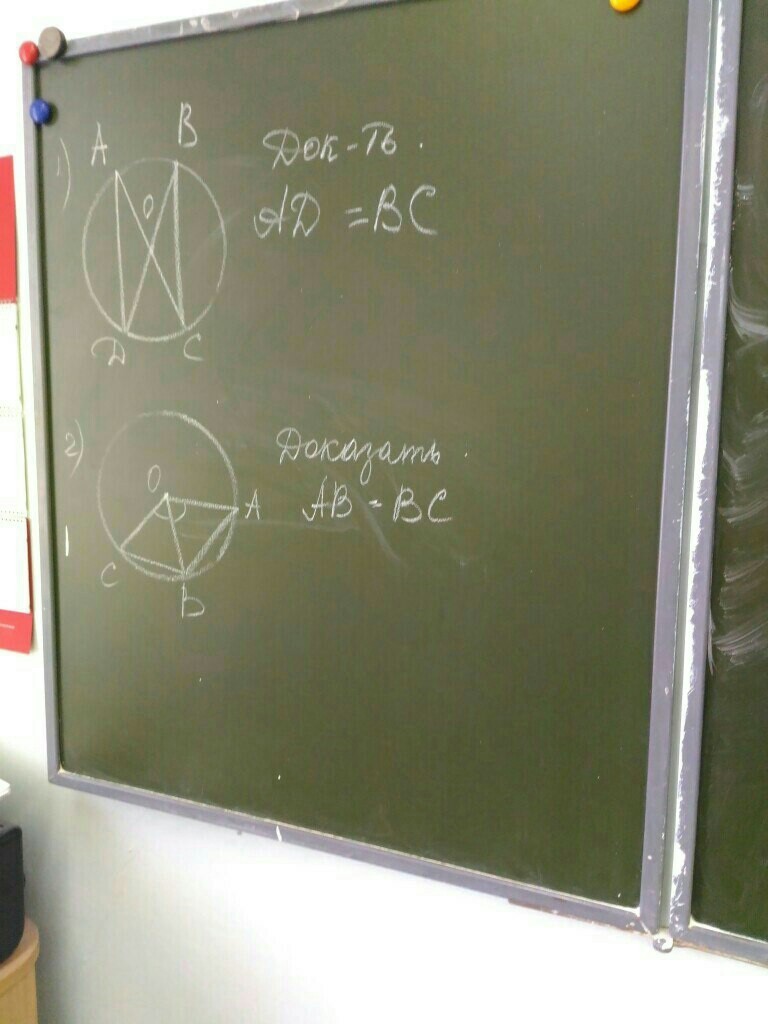 1)
A
B
О
D
C
Док-ть.
AD = BC
2)
О
A
C
B
Доказать.
AB = BC